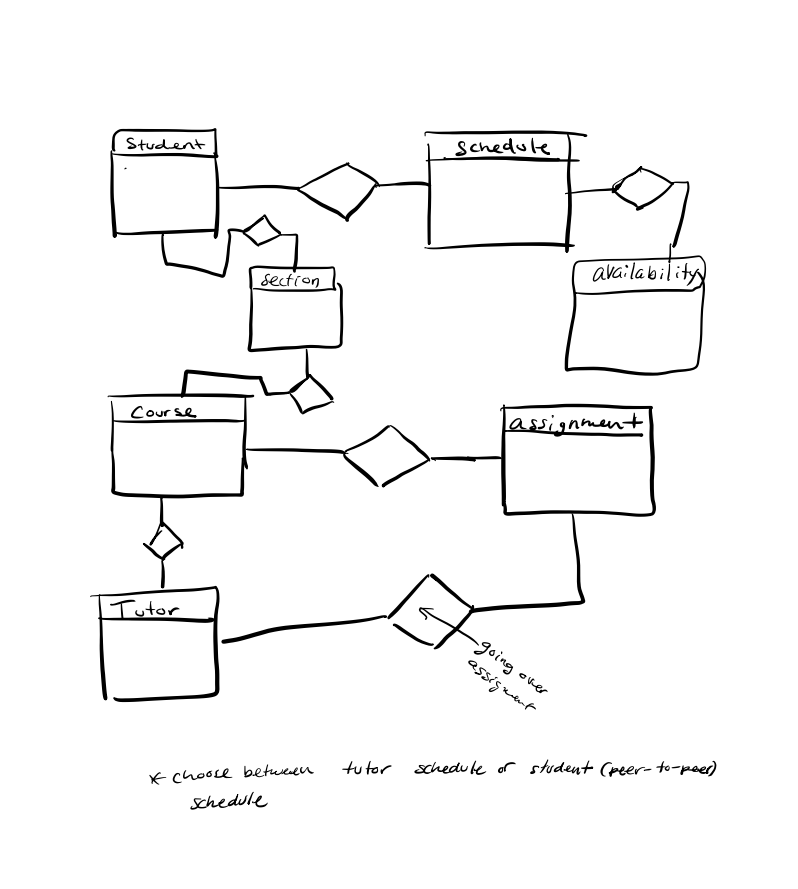 Student
schedule
availability
section
Course
assignment
Tutor
going over
assigment
* choose between tutor schedule or student (peer-to-peer)
schedule